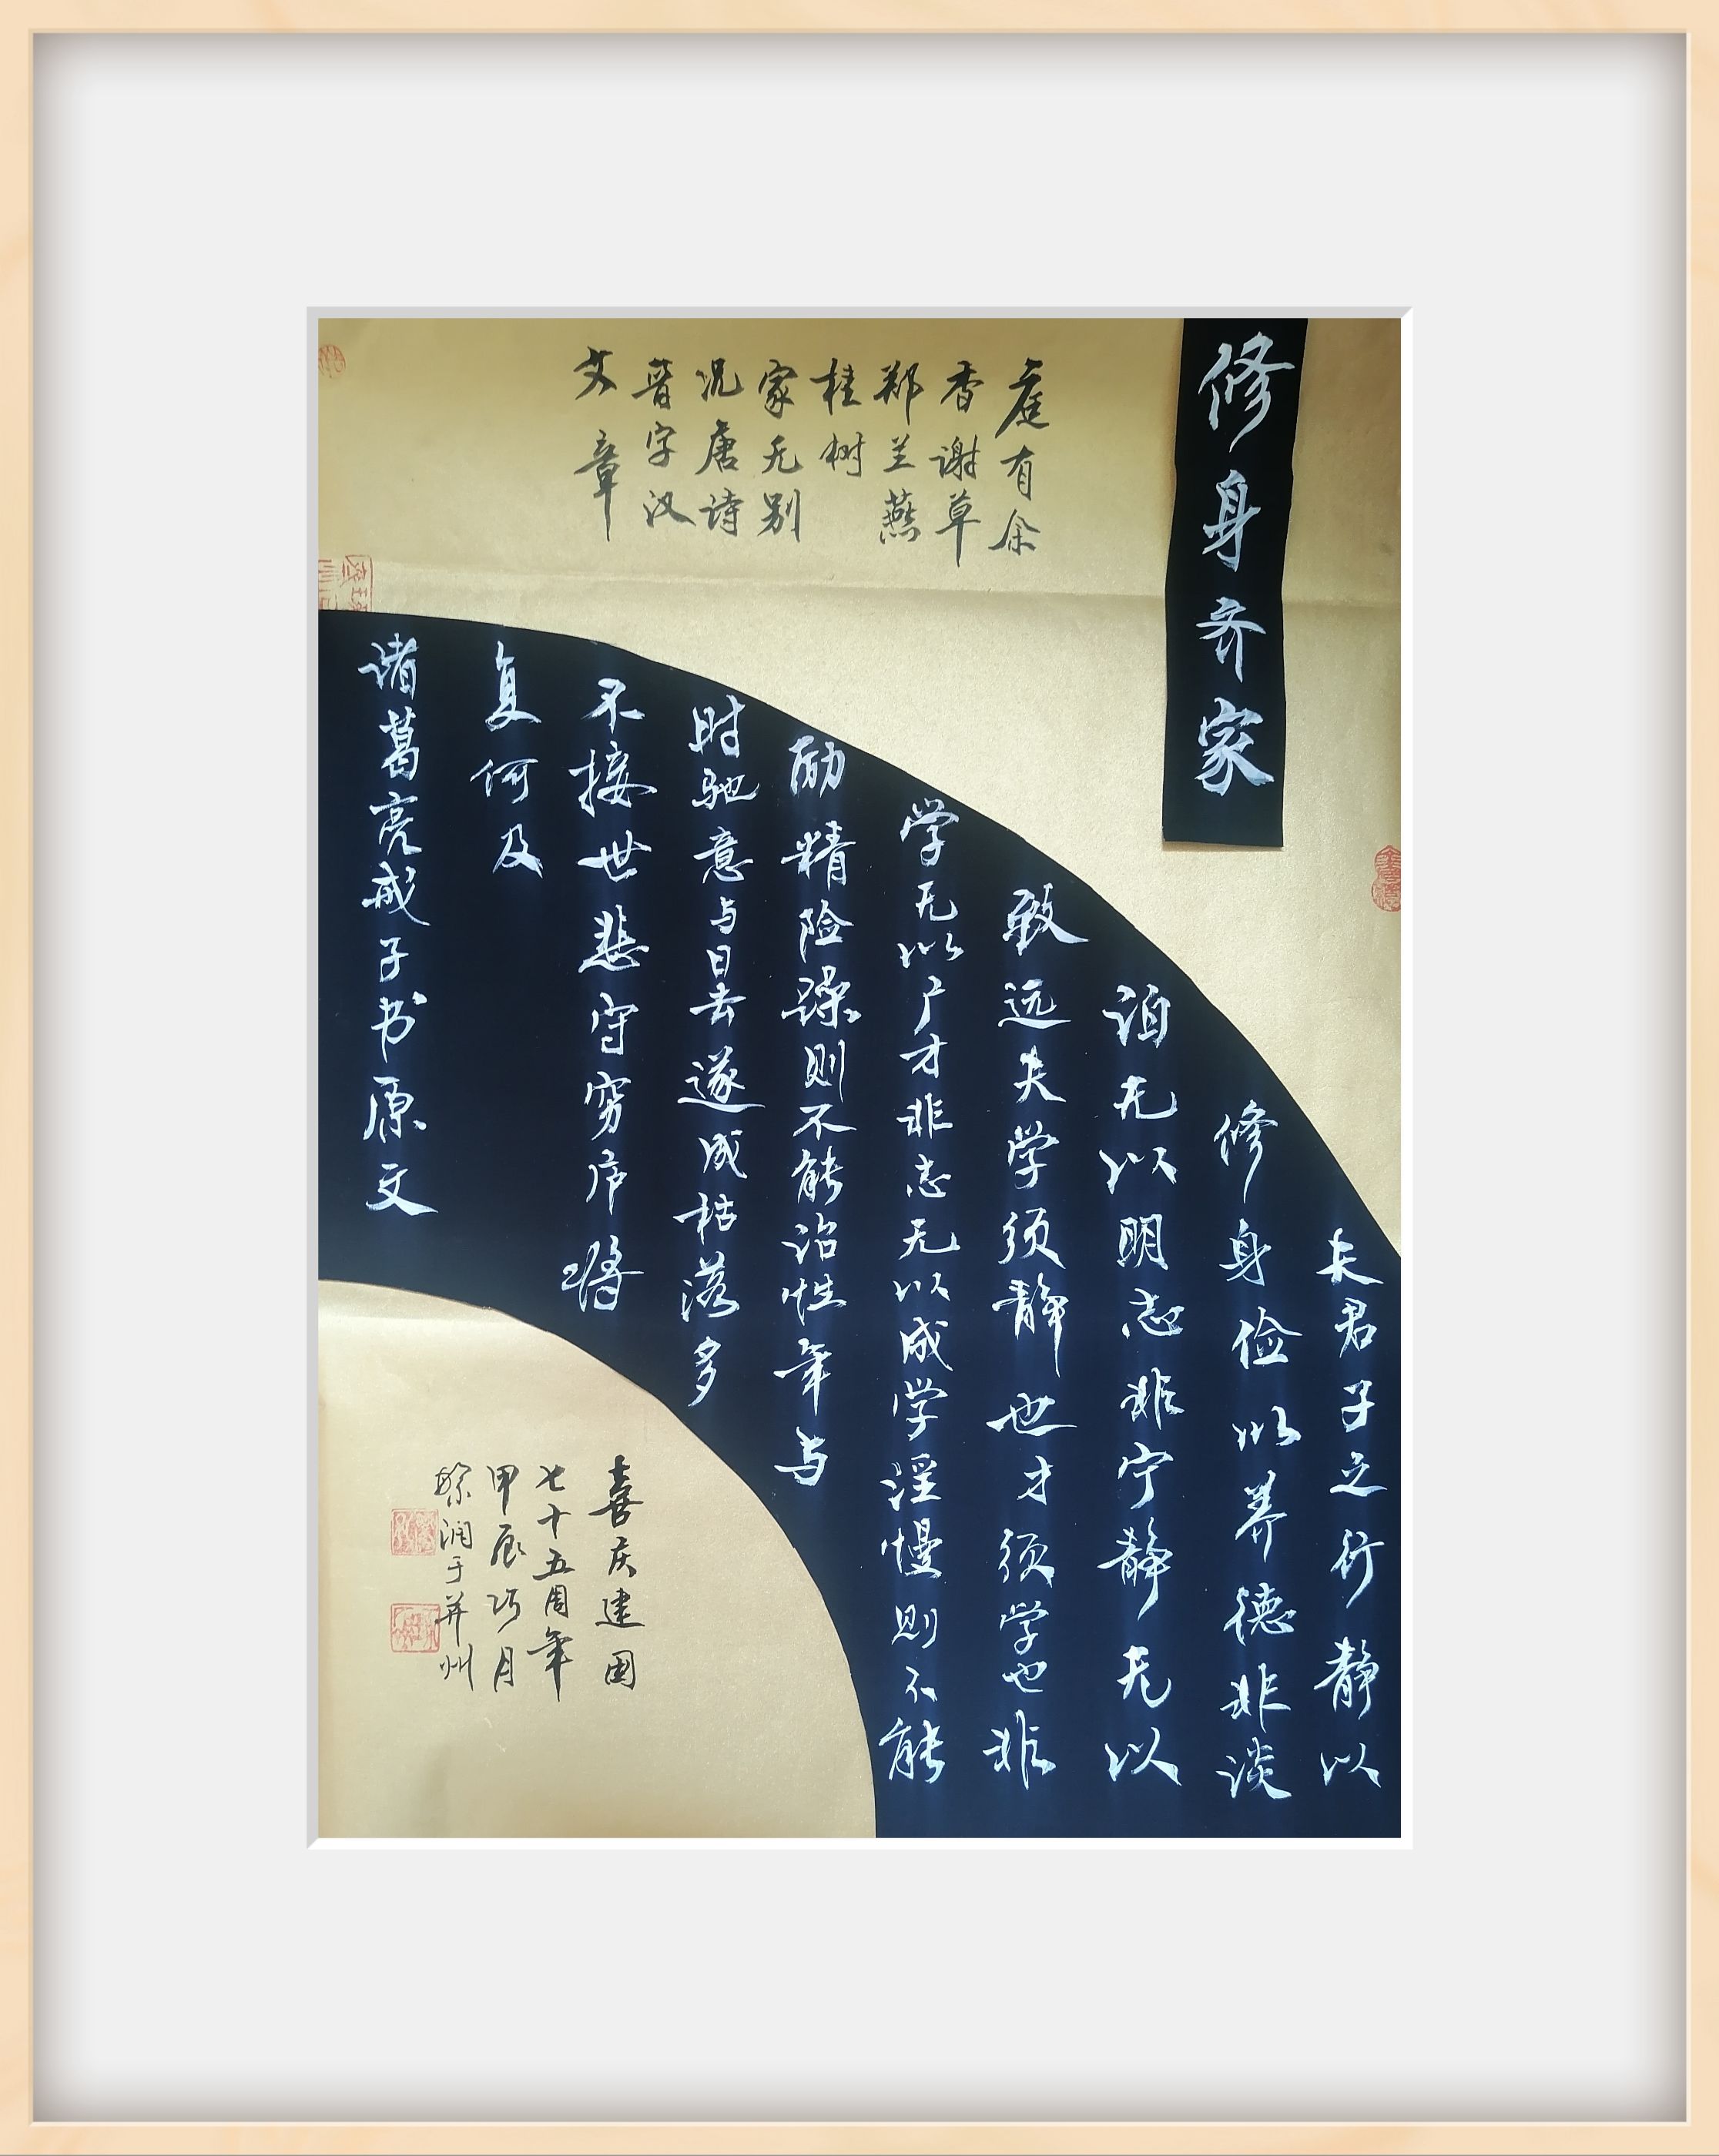 修身齐家
庭有余
香谢草
郑兰燕
桂树
家无别
况唐诗
晋字汉
文章
夫君子之行静以
修身俭以养德非淡
泊无以明志非宁静无以
致远夫学须静也才须学也非
学无以广才非志无以成学淫慢则不能
励精险躁则不能治性年与
时驰意与日去遂成枯落多
不接世悲守穷庐将
复何及
诸葛亮戒子书原文
喜庆建国
七十五周年
甲辰巧月
润于并州